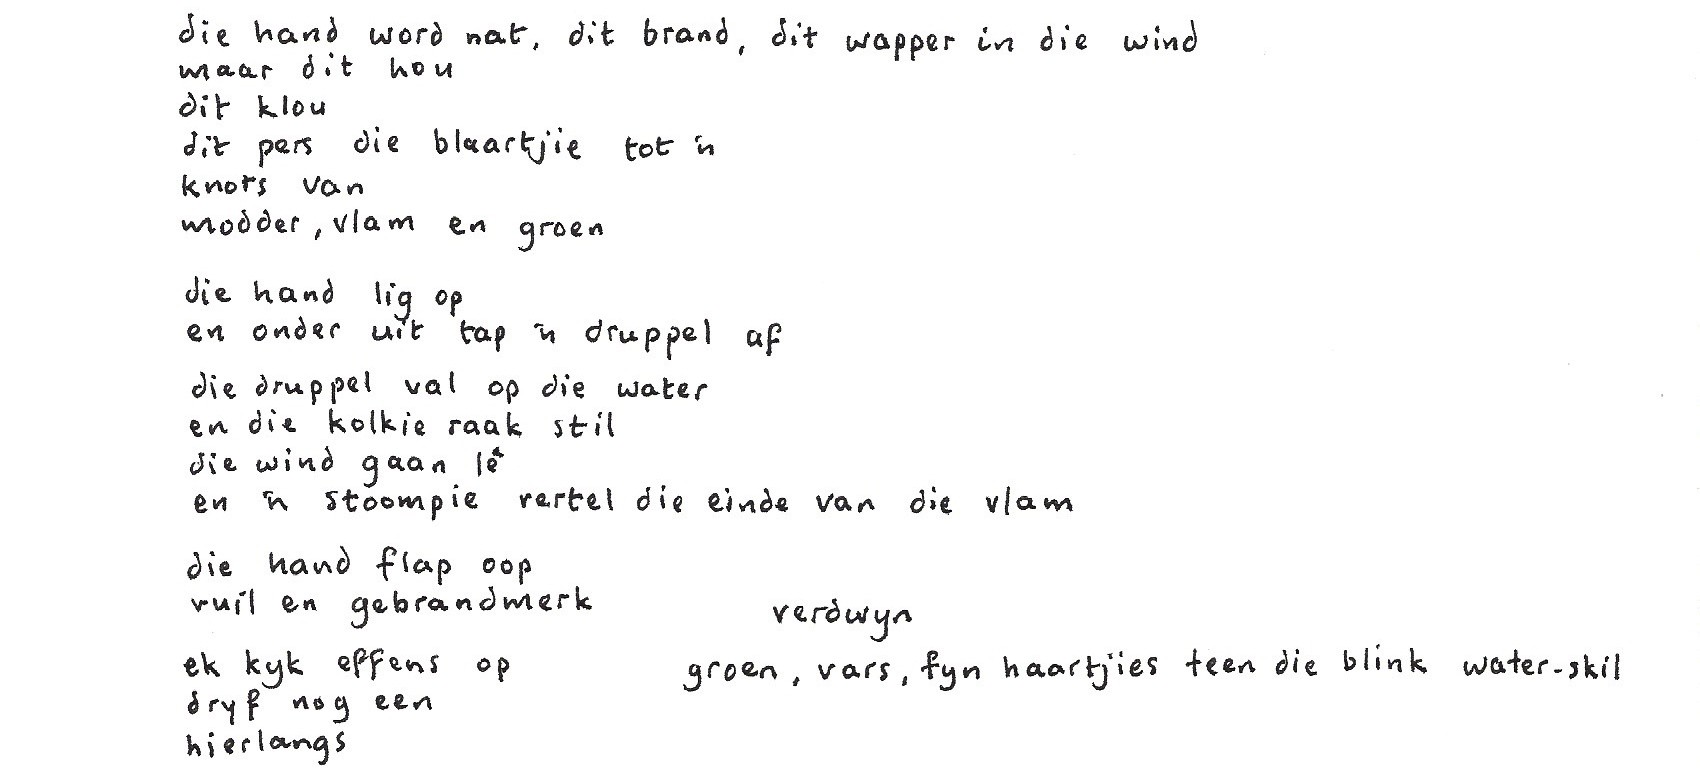 die hand word nat, dit brand, dit wapper in die wind
maar dit hou
dit klou
dit pers die blaartjie tot 'n
knots van
modder, vlam en groen
die hand lig op
en onder uit tap 'n druppel af
die druppel val op die water
en die kolkie raak stil
die wind gaan lê
en 'n stoompie vertel die einde van die vlam
die hand flap oop
vuil en gebrandmerk
verdwyn
ek kyk effens op groen, vars, fyn haartjies teen die blink water-skil
dryf nog een
hierlangs